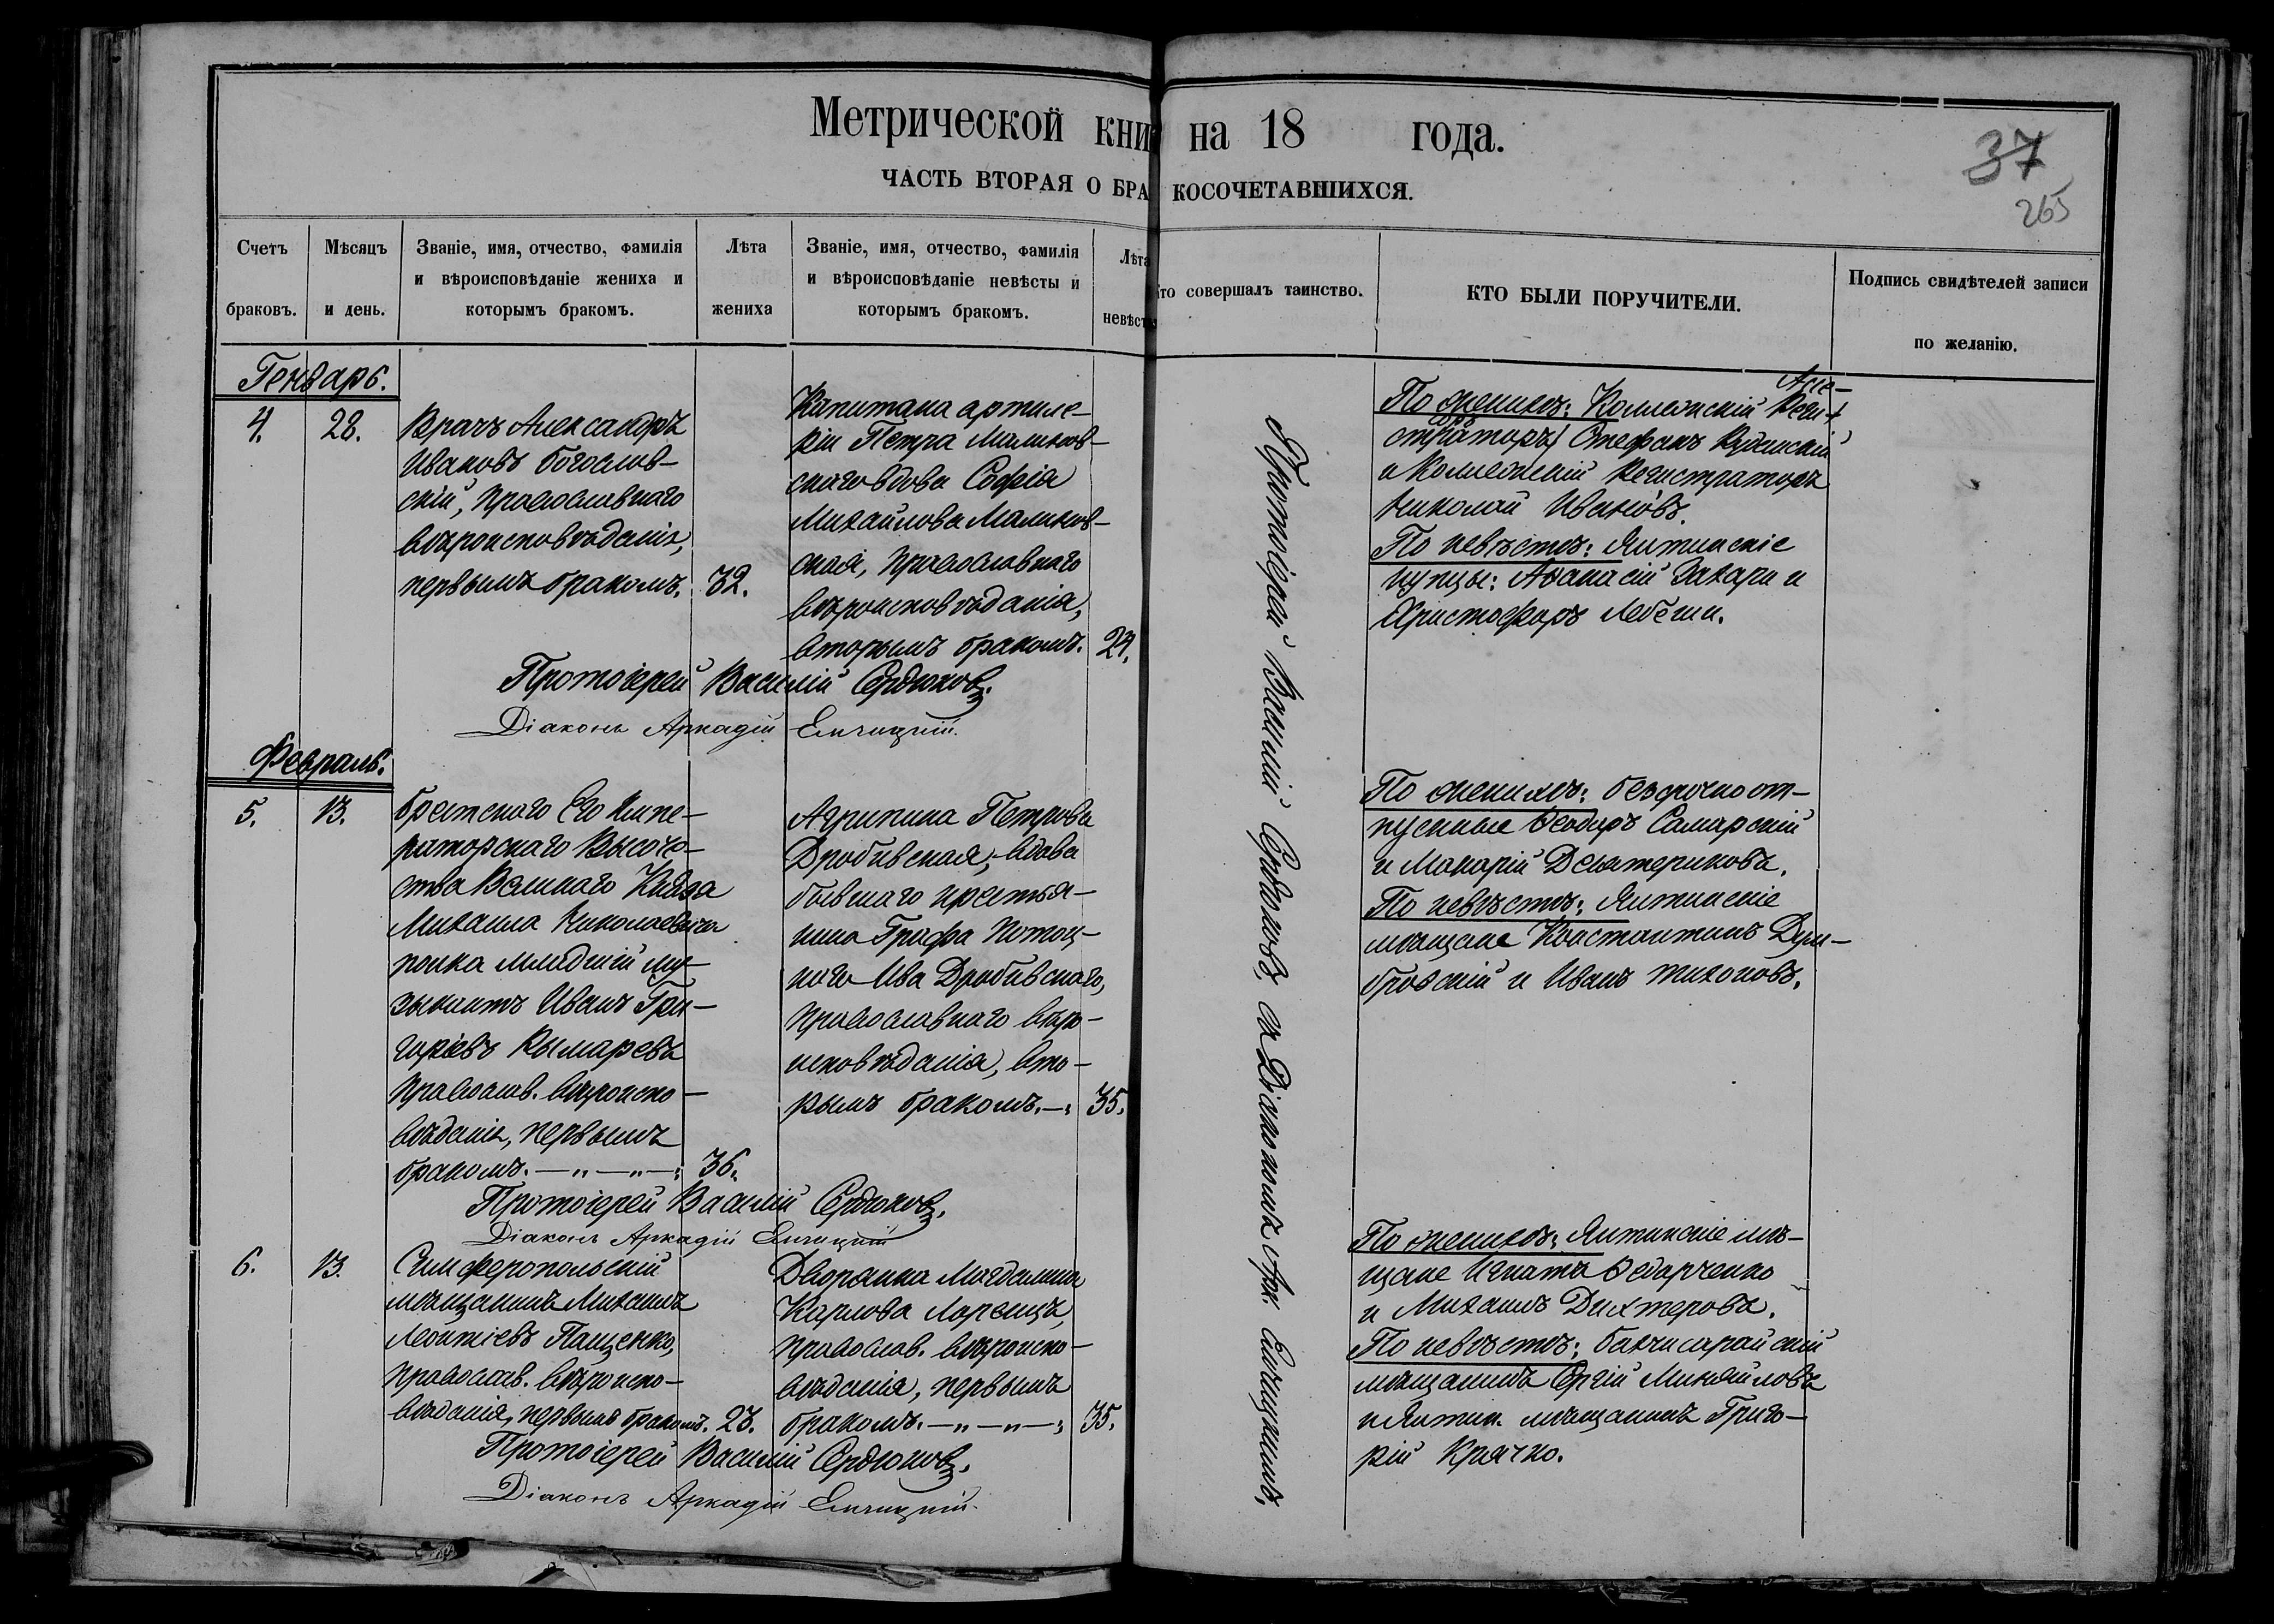 Метрической кни на 18 года.
ЧАСТЬ ВТОРАЯ О БРА КОСОЧЕТАВШИХСЯ.
37
265
Счетъ браковъ.
Мѣсяцъ и день.
Званіе, имя, отчество, фамилія
и вѣроисповѣданіе жениха и
которымъ бракомъ.
Лѣта
жениха
Званіе, имя, отчество, фамилія
и вѣроисповѣданіе невѣсты и
которымъ бракомъ.
Лѣта
невѣсты
Кто совершалъ таинство.
КТО БЫЛИ ПОРУЧИТЕЛИ.
Подпись свидѣтелей записи
по желанію.
Генварь.
4.
28.
Врачъ Александръ
Ивановъ Богослов-
скій, православнаго
вѣроисповѣданія,
первымъ бракомъ. 32.
Капитана артиле-
ріи Петра Малинов-
скаго вдова Софія
Михайлова Малинов-
ская, православнаго
вѣроисповѣданія,
вторымъ бракомъ. 24.
Протоіерей Василій Сердюковъ, съ Діакономъ Арк.
По женихѣ: Коллежскій Реги-
Ассе-
соръ
страторъ Стефанъ
и Коллежскій Регистраторъ
Николай Ивановъ.
По невѣстѣ: Ялтинскіе
купцы: Аѳанасій Захари и
Христофоръ Лебеши.
Протоіерей Василій Сердюковъ.
Діаконъ Аркадій
Февраль.
5.
13.
Брестскаго Его Импе-
раторскаго Высоче-
ства Великаго Князя
Михаила Николаевича
полка младшій му-
зыкантъ Иванъ Гри-
горіевъ Кымаревъ
православ. вѣроиспо-
вѣданія, первымъ
бракомъ. —"—"—: 36.
Агрипина Петрова
Дробивская, вдова
бывшаго крестья-
нина Графа Потоц-
каго Ива Дробивскаго,
православнаго вѣро-
исповѣданія, вто-
рымъ бракомъ.—: 35.
По женихѣ: безсрочно от-
пускные Ѳеодоръ Самарскій
и Макарій Десятериковъ.
По невѣстѣ: Ялтинскіе
мѣщане Константинъ Дум-
бровскій и Иванъ Тихоновъ.
Протоіерей Василій Сердюковъ.
Діаконъ Аркадій
6.
13.
Симферопольскій
мѣщанинъ Михаилъ
Леонтіевъ Пащенко,
православ. вѣроиспо-
вѣданія, первымъ бракомъ. 23.
Дворянка Магдалина
Карлова Лоренцъ,
православ. вѣроиспо-
вѣданія, первымъ
бракомъ.—"—"—: 35.
По женихѣ: Ялтинскіе мѣ-
щане Игнатъ Ѳедорченко
и Михаилъ Дихтеровъ.
По невѣстѣ: бахчисарайскій
мѣщанинъ Сергій Михайловъ
и Ялтин. мѣщанинъ Григо-
рій Крячко.
Протоіерей Василій Сердюковъ.
Діаконъ Аркадій